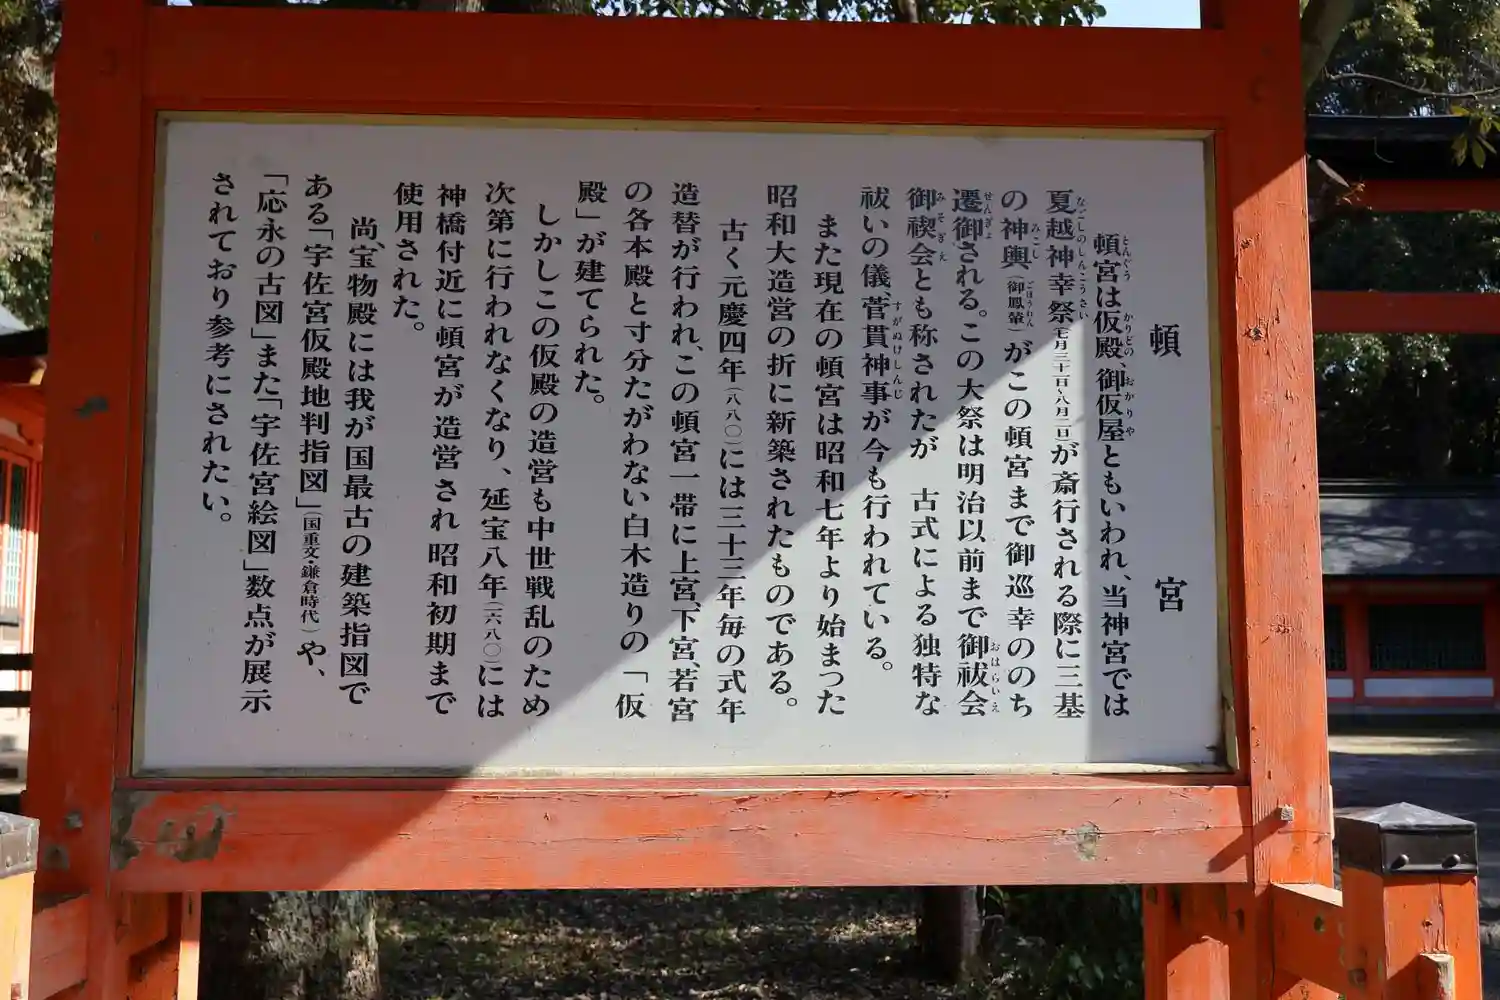 頓宮
頓宮は仮殿、御仮屋ともいわれ、当神宮では
夏越神幸祭(七月三十一日~八月二日)が斎行される際に三基
の神輿(御鳳輦)がこの頓宮まで御巡幸ののち
遷御される。この大祭は明治以前まで御祓会
御禊会とも称されたが 古式による独特な
祓いの儀、菅貫神事が今も行われている。
また現在の頓宮は昭和七年より始まつた
昭和大造営の折に新築されたものである。
古く元慶四年(八八〇)には三十三年毎の式年
造替が行われ、この頓宮一帯に上宮、下宮、若宮
の各本殿と寸分たがわない白木造りの「仮
殿」が建てられた。
しかしこの仮殿の造営も中世戦乱のため
次第に行われなくなり、延宝八年(一六八〇)には
神橋付近に頓宮が造営され 昭和初期まで
使用された。
尚、宝物殿には我が国最古の建築指図で
ある「宇佐宮仮殿地判指図」(国重文・鎌倉時代)や、
「応永の古図」また「宇佐宮絵図」数点が展示
されており参考にされたい。